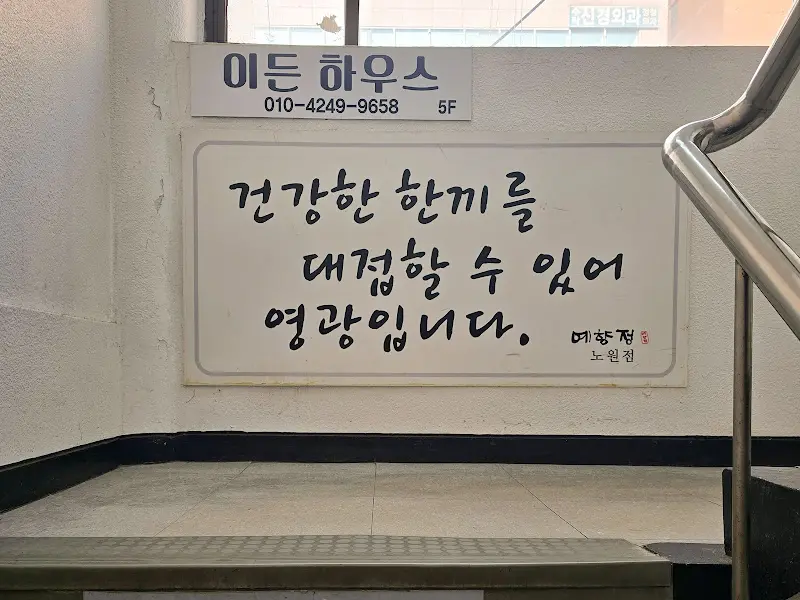 신경외과
이든 하우스
010-4249-9658 5F
건강한 한끼를
대접할 수 있어
영광입니다.
예향정
노원점